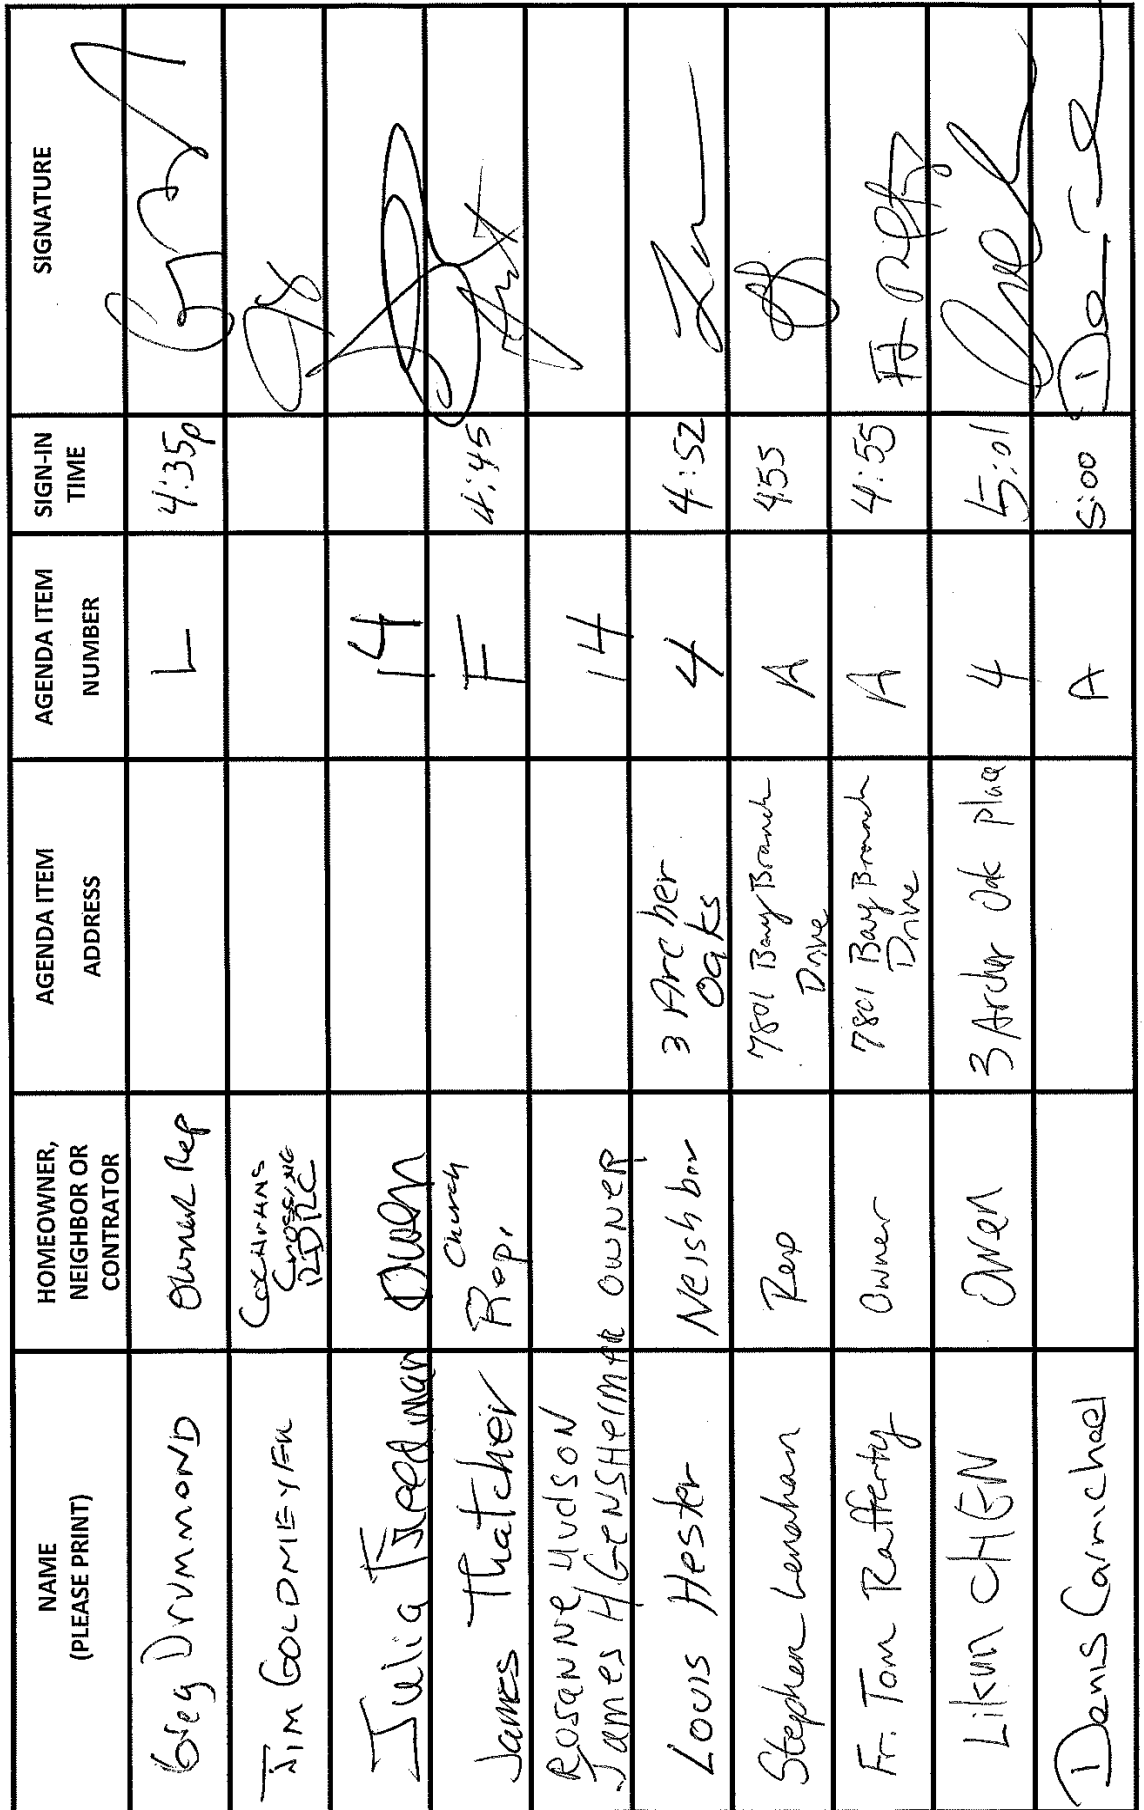 NAME
(PLEASE PRINT)
HOMEOWNER,
NEIGHBOR OR
CONTRATOR
AGENDA ITEM
ADDRESS
AGENDA ITEM
NUMBER
SIGN-IN
TIME
SIGNATURE
Greg Drummond
Owner Rep
L
4:35p
JIM GOLDMEYER
COCHRANS
CROSSING
RDRC
Julia Freedman
Owen
14
James Thatcher
Church
Rop.
F
4:45
Rosanne Hudson
James H GENSHeimer OWNER
14
Louis Hester
Neishbor
3 Archer
Oaks
4
4:52
Stephen Lenahan
Rep
7801 Bay Branch
Drive
A
4:55
Fr. Tom Rafferty
Owner
7801 Bay Branch
Drive
A
4:55
Likun CHEN
Owen
3 Archer Oak place
4
5:01
Denis Carmichael
A
5:00